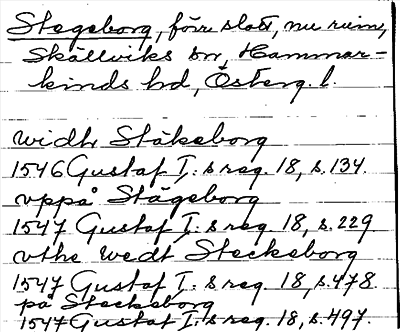 Stegeborg, förr slott, nu ruin,
Skällviks sn, Hammar-
kinds hd, Österg. l.
widh Stäkeborg
1546 Gustaf I:s reg. 18, s. 134.
vppå Stägeborg
1547 Gustaf I:s reg. 18, s. 229
vthe wedt Steckeborg
1547 Gustaf I:s reg. 18, s. 478.
på Steckeborg
1547 Gustaf I:s reg. 18, s. 497.